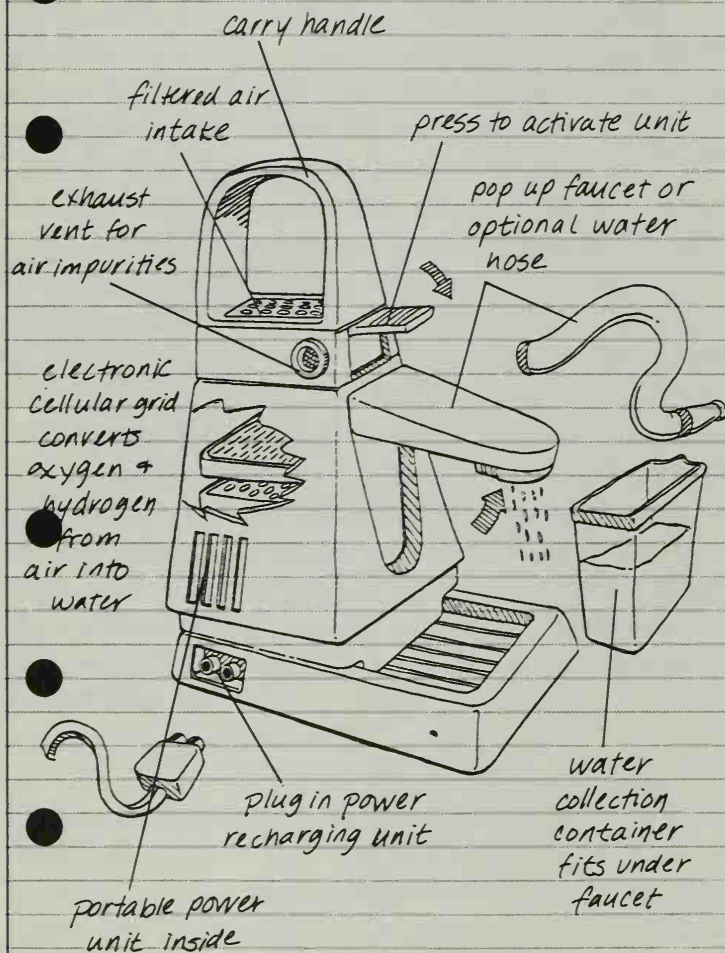 carry handle
filtered air
intake
press to activate unit
exhaust
vent for
air impurities
pop up faucet or
optional water
hose
electronic
cellular grid
converts
oxygen &
hydrogen
from
air into
water
plug in power
recharging unit
portable power
unit inside
water
collection
container
fits under
faucet